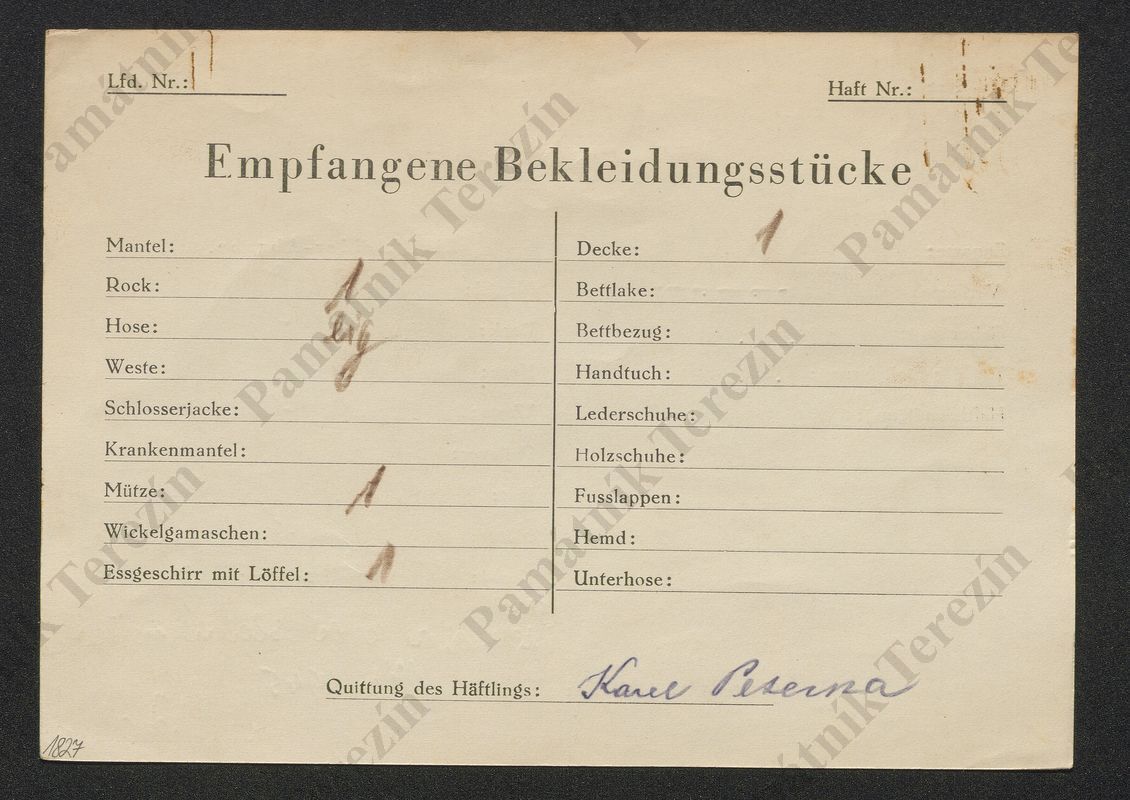 Lfd. Nr.:
Haft Nr.:
Empfangene Bekleidungsstücke
Mantel:
Rock: 1
Hose:
Weste:
Schlosserjacke:
Krankenmantel:
Mütze: 1
Wickelgamaschen:
Essgeschirr mit Löffel: 1
Decke: 1
Bettlake:
Bettbezug:
Handtuch:
Lederschuhe:
Holzschuhe:
Fusslappen:
Hemd:
Unterhose:
Quittung des Häftlings: Karel
1827
Památník Terezín